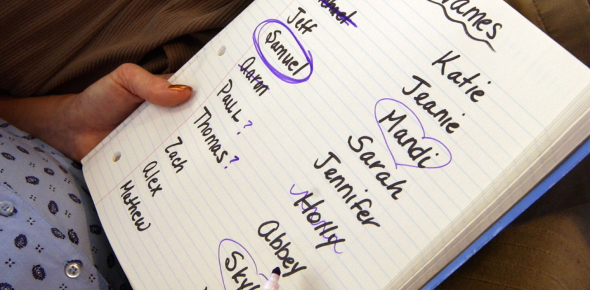 ames
Jeff
Samuel
Aaron
Paul?
Thomas?
Zach
Alex
Mathew
Katie
Jeanie
Mandi
Sarah
Jennifer
Holly
Abbey
Sky